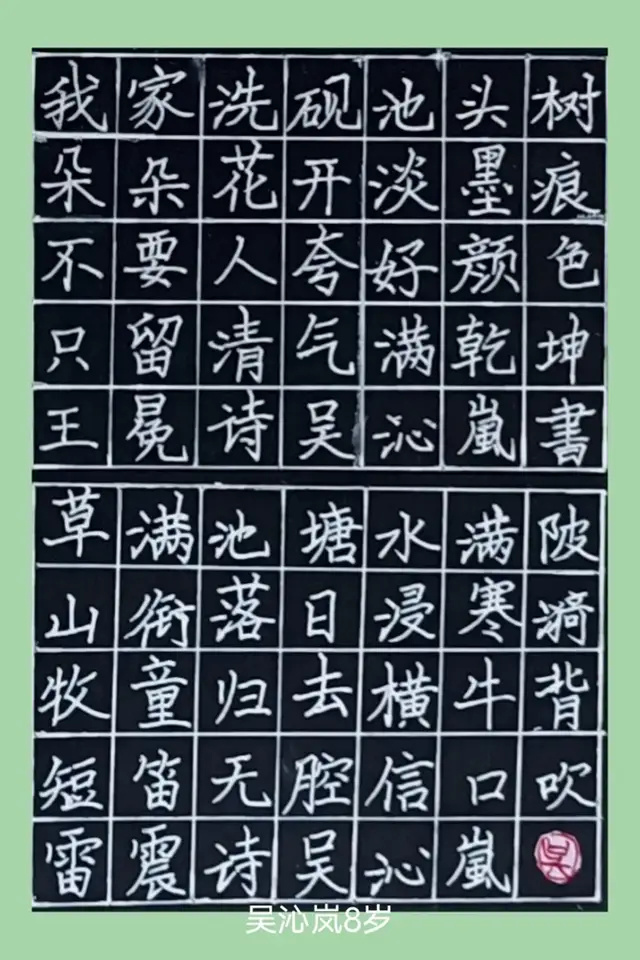 我家洗砚池头树
朵朵花开淡墨痕
不要人夸好颜色
只留清气满乾坤
王冕诗吴沁嵐書
草满池塘水满陂
山衔落日浸寒漪
牧童归去横牛背
短笛无腔信口吹
雷震诗吴沁嵐
吴
吴沁岚8岁